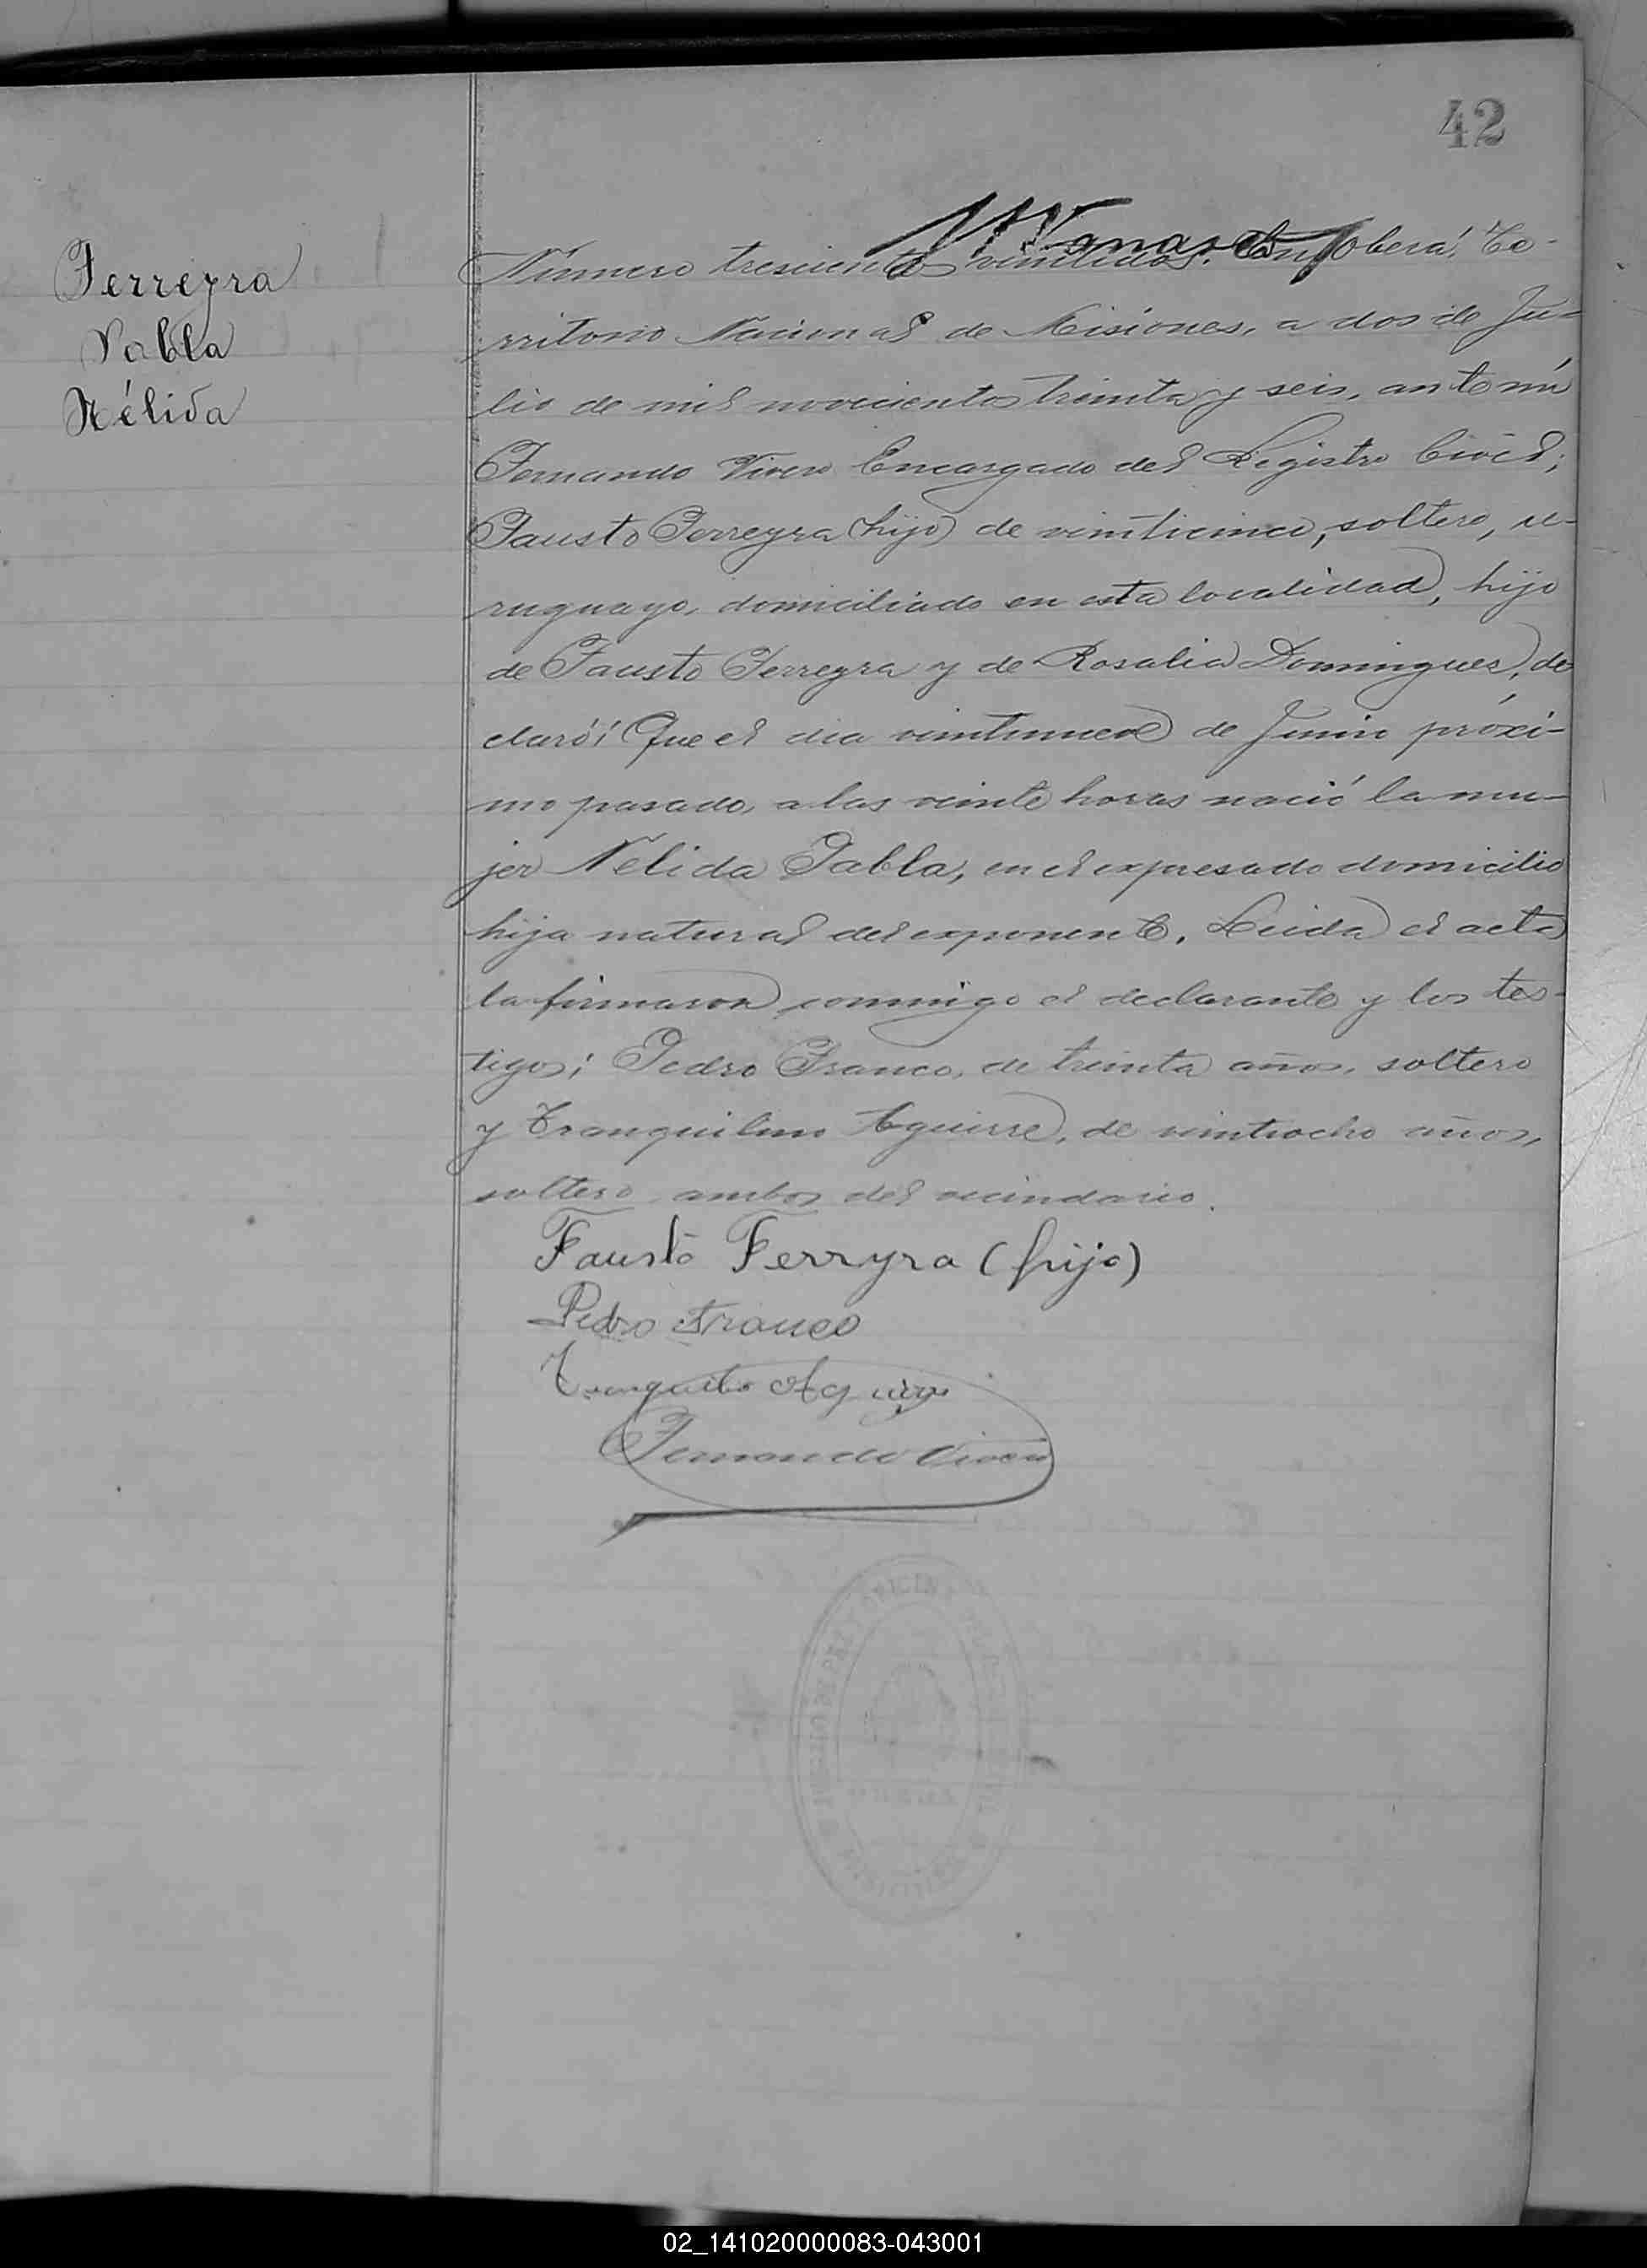 42
Ferreyra
Pabla
Nélida
Número trescientos veintidos. En Oberá, Te-
rritorio Nacional de Misiones, a dos de Ju-
lio de mil novecientos treinta y seis, ante mí
Fernando Vivero Encargado del Registro Civil;
Fausto Ferreyra (hijo) de veinticinco, soltero, u-
ruguayo, domiciliado en esta localidad, hijo
de Fausto Ferreyra y de Rosalia Domingues, de
claró: Que el dia veintinueve de Junio próxi-
mo pasado, a las veinte horas nació la mu-
jer Nelida Pabla, en el expresado domicilio
hija natural del exponente. Leida el acta
la firmaron conmigo el declarante y los tes-
tigos; Pedro Franco, de treinta años, soltero
y Tranquilino Aguirre, de veintiocho años,
soltero ambos del vecindario.
Fausto Ferryra (hijo)
Pedro Franco
Fernando
02_141020000083-043001